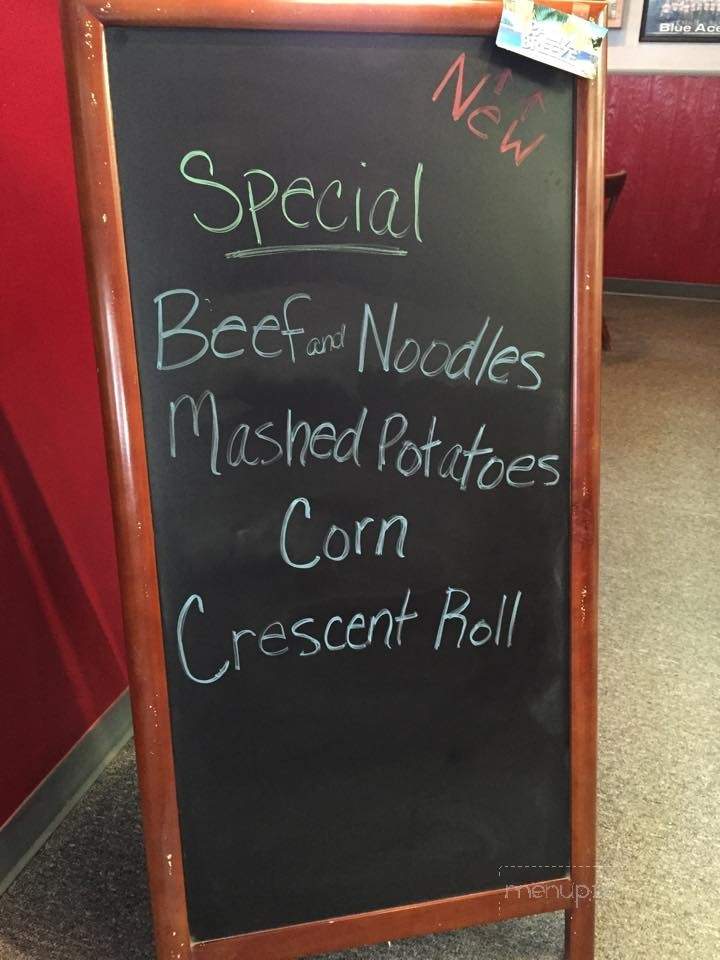 Blue Ace
BREEZE
New
Special
Beef and Noodles
Mashed Potatoes
Corn
Crescent Roll
menup